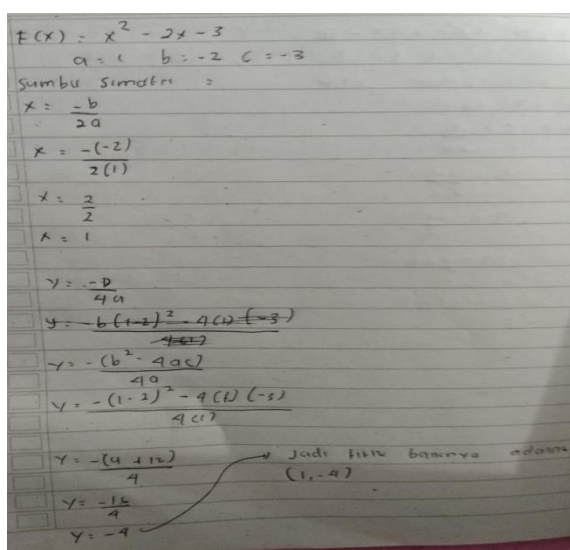 F(x) = x² - 2x - 3
a = 1 b = -2 c = -3
Sumbu Simetri =
x = -b / 2a
x = -(-2) / 2(1)
x = 2 / 2
x = 1
y = -D / 4a
y = -b(1-2)² - 4(1)(-3) / 4(1)
y = -(b² - 4ac) / 4a
y = -(1-2)² - 4(1)(-3) / 4(1)
y = -(4 + 12) / 4
y = -16 / 4
y = -4
Jadi titik
(1, -4)